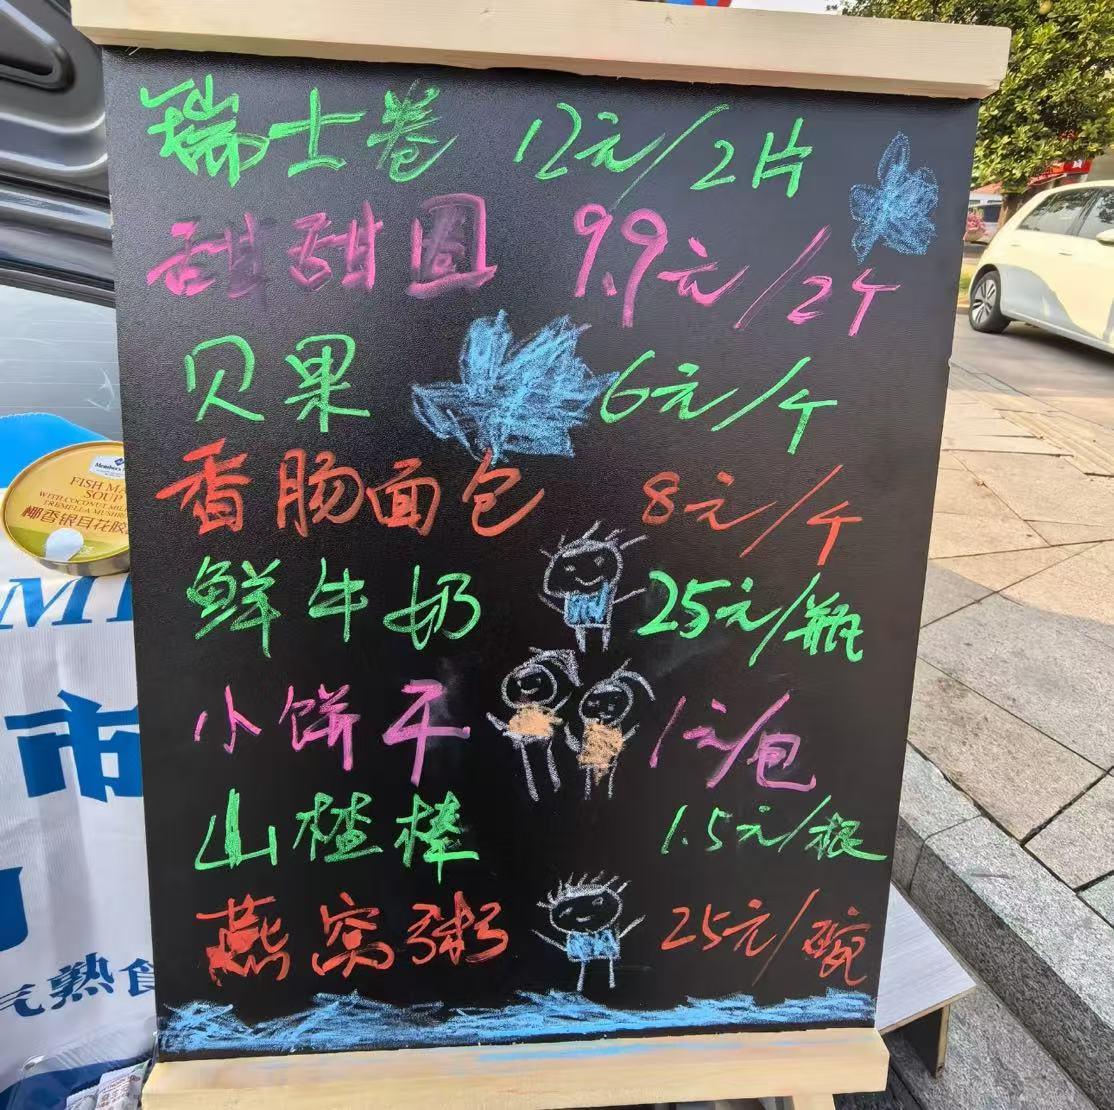 瑞士卷 12元/2片
甜甜圈 9.9元/2个
贝果 6元/个
香肠面包 8元/个
鲜牛奶 25元/瓶
小饼干 1元/包
山楂棒 1.5元/根
燕窝粥 25元/碗
Member's
FISH MA
SOUP
WITH COCONUT MIL
TREMELLA MUSHRO
椰香银耳花胶
M
市
气熟食